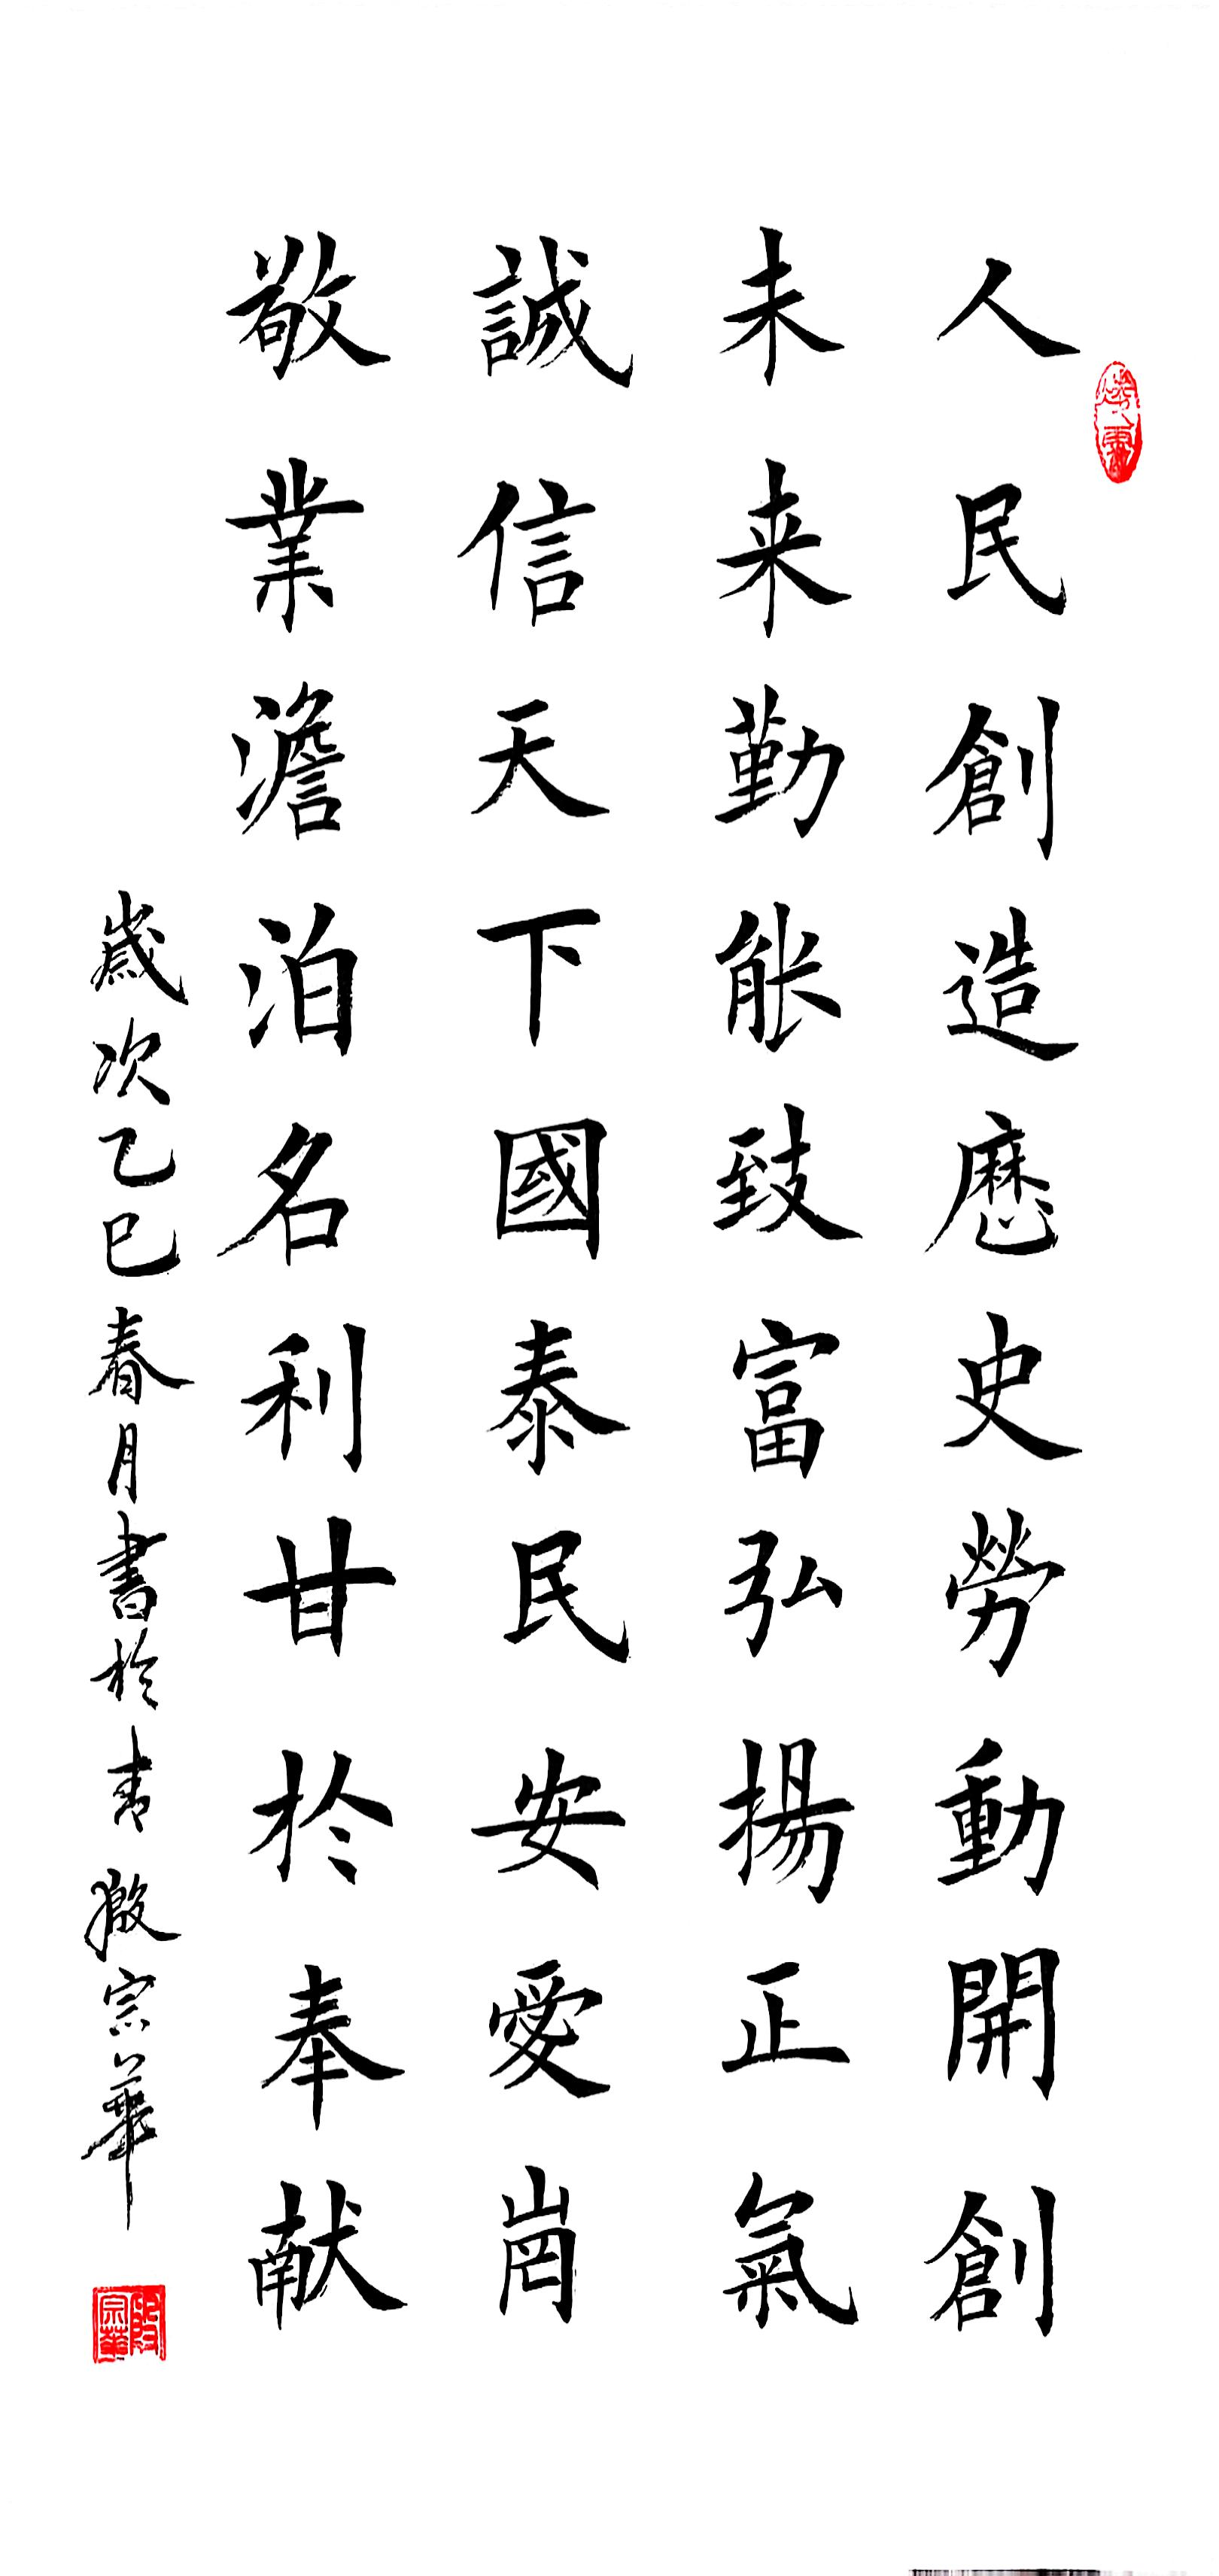 人民創造歷史勞動開創
未来勤能致富弘揚正氣
誠信天下國泰民安愛崗
敬業澹泊名利甘於奉献
歲次乙巳春月書於青 殷宗華